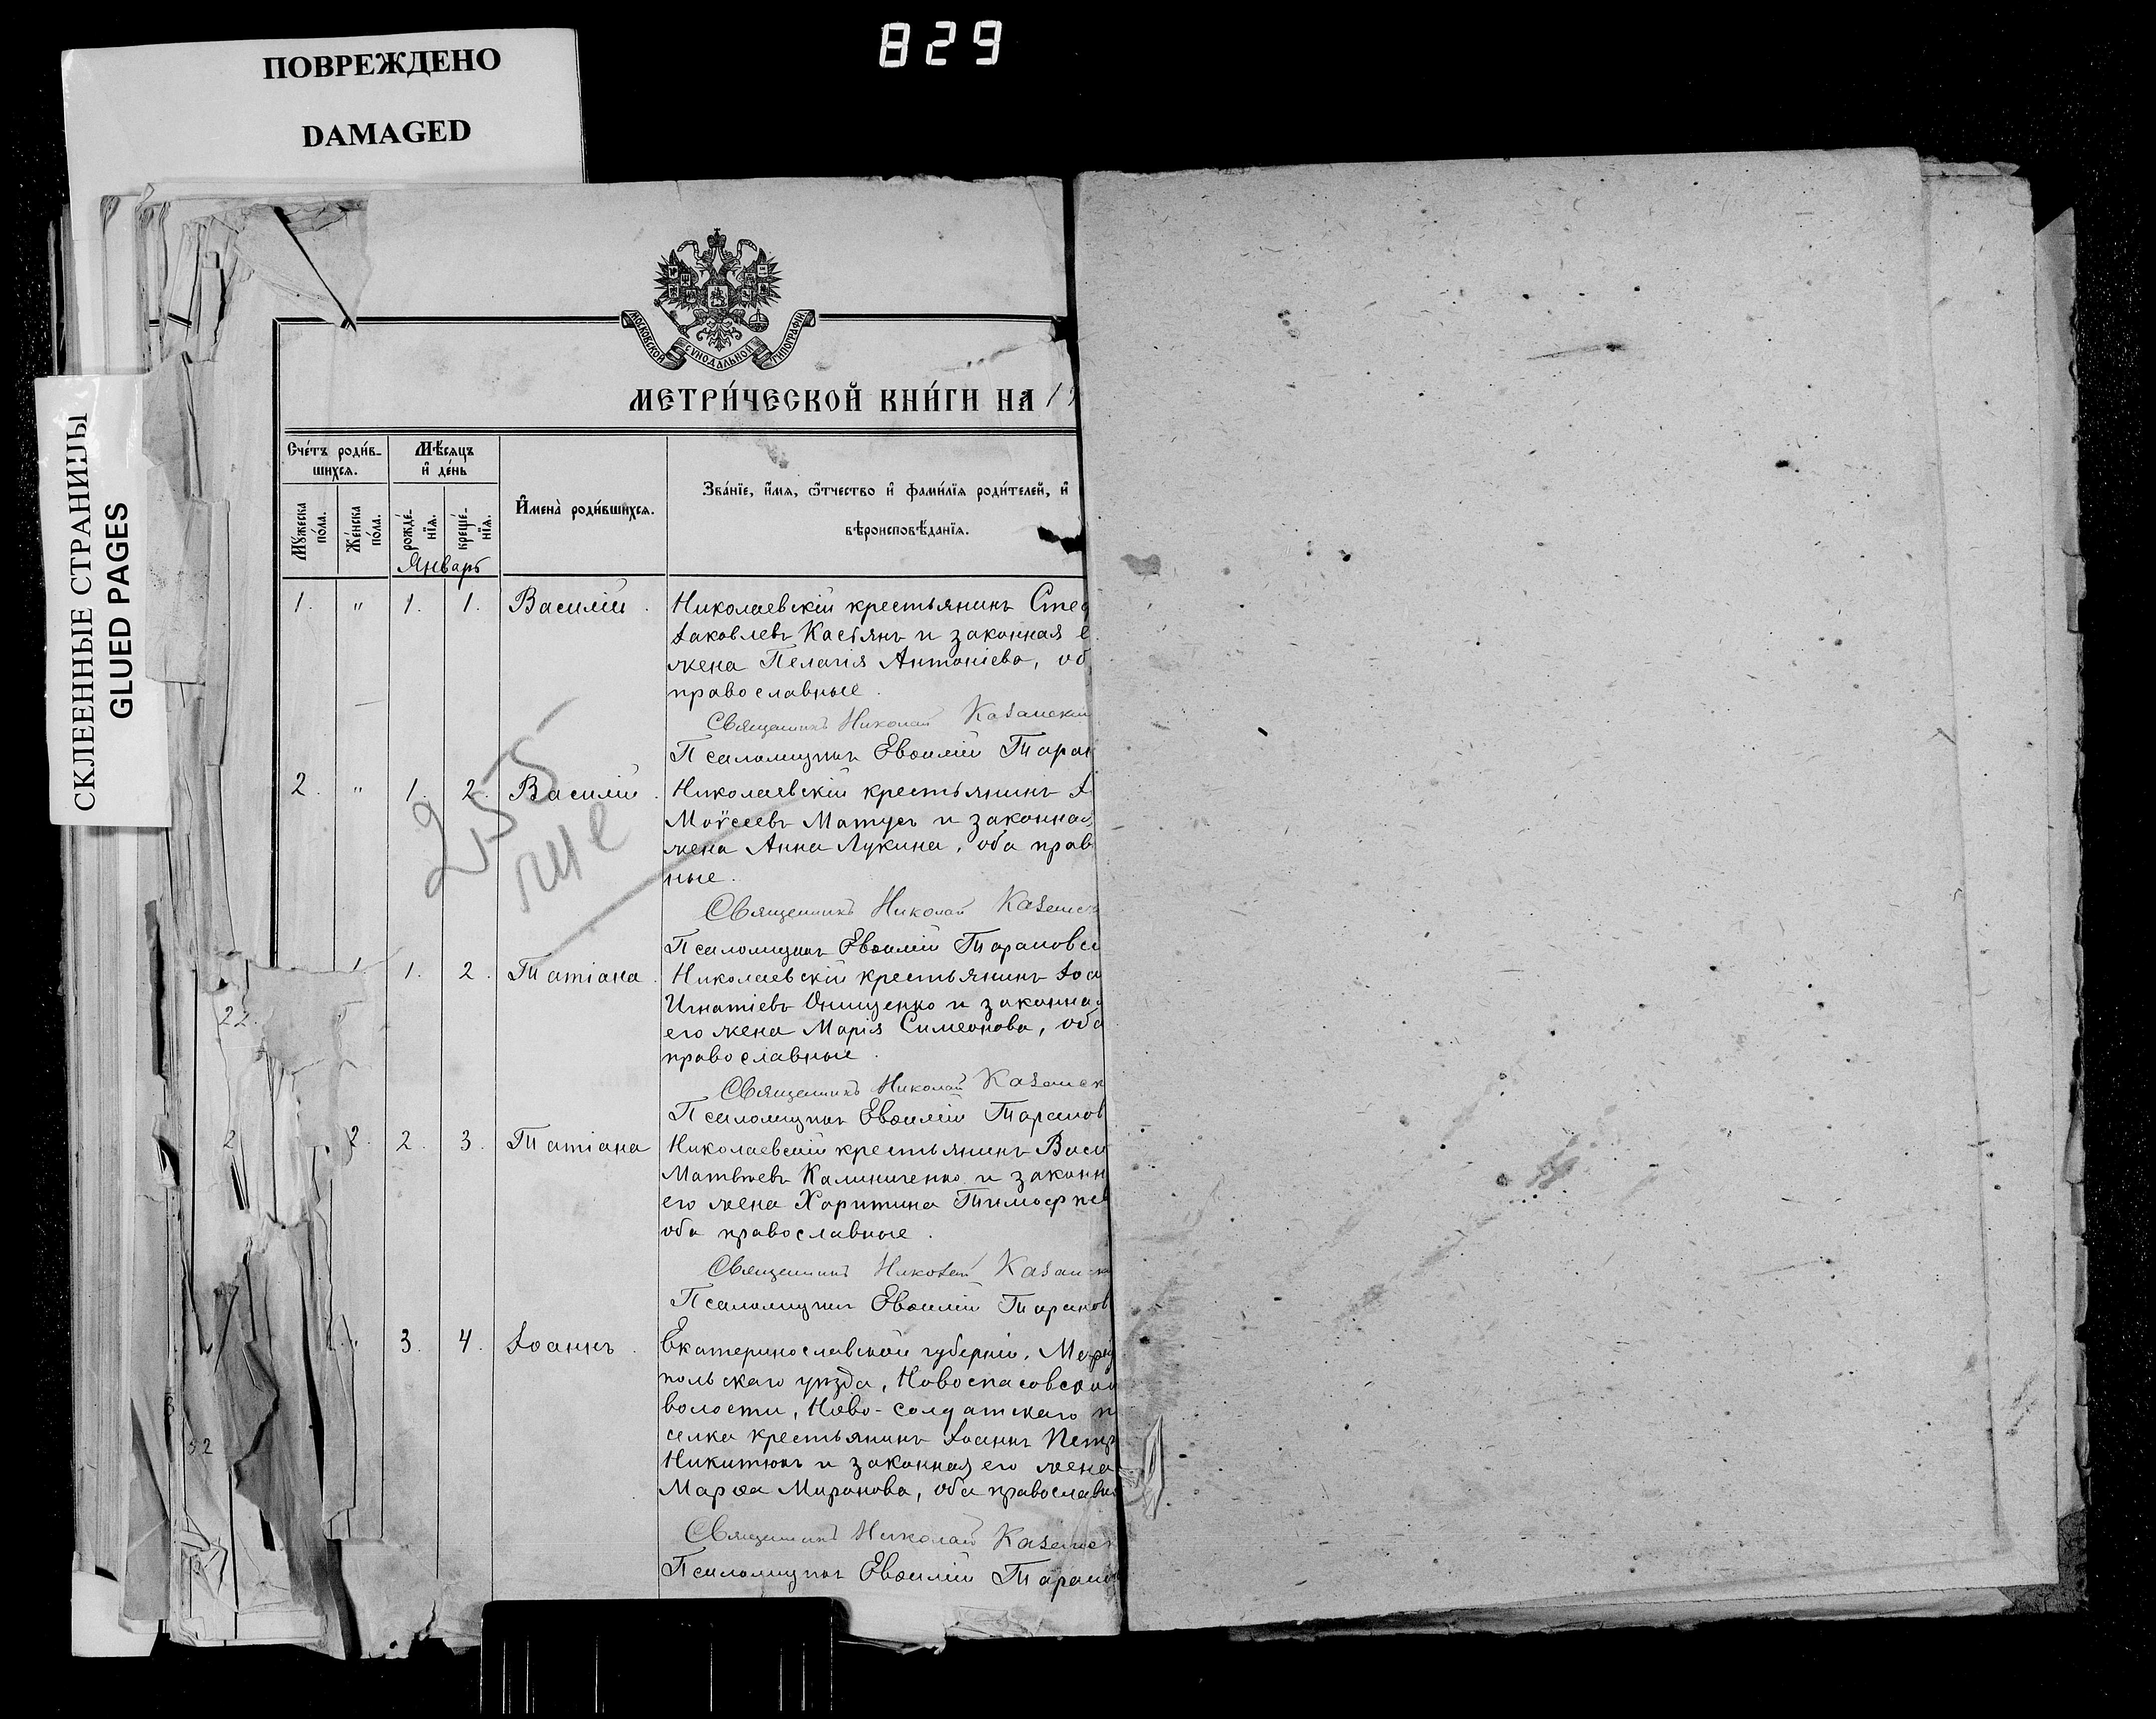 829
ПОВРЕЖДЕНО
DAMAGED
СКЛЕЕННЫЕ СТРАНИЦЫ
GLUED PAGES
МОСКОВСКОЙ СѴНОДАЛЬНОЙ ТИПОГРАФІИ
МЕТРИ́ЧЕСКОЙ КНИ́ГИ НА 1
Сче́тъ роди́в-
шихся.
Мѣ́сяцъ
и҆ де́нь
Мꙋ́жеска
по́ла.
Же́нска
по́ла.
рожде́-
нїѧ.
креще́-
нїѧ.
И҆мена̀ роди́вшихся.
Зва́нїе, и҆́мя, ѻ҆́тчество и҆ фами́лїя роди́телей, и҆
вѣроисповѣ́данїя.
Январь
1. " 1. 1. Василій. Николаевскій крестьянинъ Стеф
Іаковлевъ Касьянъ и законная е
жена Пелагія Антоніева, об
православные.
Священникъ Николай Казанскій
Псаломщикъ Евѳимій Таран
2. " 1. 2. Василій. Николаевскій крестьянинъ І
Моѵсеевъ Матусъ и законная
жена Анна Лукина, оба прав
ные.
255
Священникъ Николай Казанс
Псаломщикъ Евѳимій Тарановс
1. 1. 2. Татіана. Николаевскій крестьянинъ Іоа
Игнатіевъ Онищенко и законная
его жена Марія Симеонова, оба
православные.
22.
Священникъ Николай Казанск
Псаломщикъ Евѳимій Таранов
2 2. 2. 3. Татіана Николаевскій крестьянинъ Васи
Матвѣевъ Калиниченко и законн
его жена Харитина Тимофѣев
оба православные.
Священникъ Николай Казанск
Псаломщикъ Евѳимій Таранов
" 3. 4. Іоаннъ. Екатеринославской губерніи, Маріу
польскаго уѣзда, Новоспасовской
волости, Ново-солдатскаго п
селка крестьянинъ Іоаннъ Петр
Никитюкъ и законная его жена
Марѳа Миронова, оба православн
52
Священникъ Николай Казанск
Псаломщикъ Евѳимій Таранов